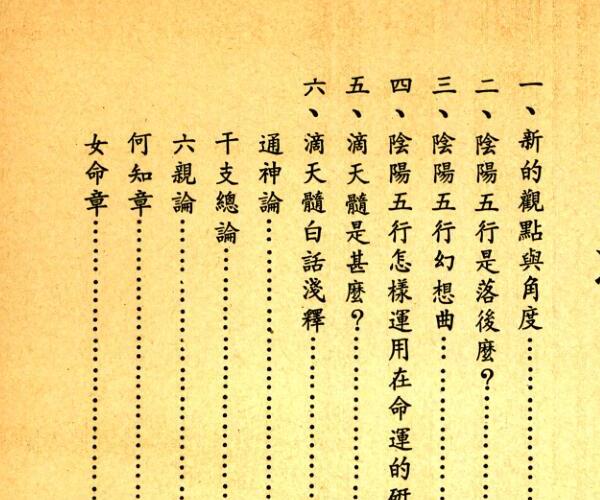 一、新的觀點與角度
二、陰陽五行是落後麼？
三、陰陽五行幻想曲
四、陰陽五行怎樣運用在命運的研
五、滴天髓是甚麼？
六、滴天髓白話淺釋
通神論
干支總論
六親論
何知章
女命章